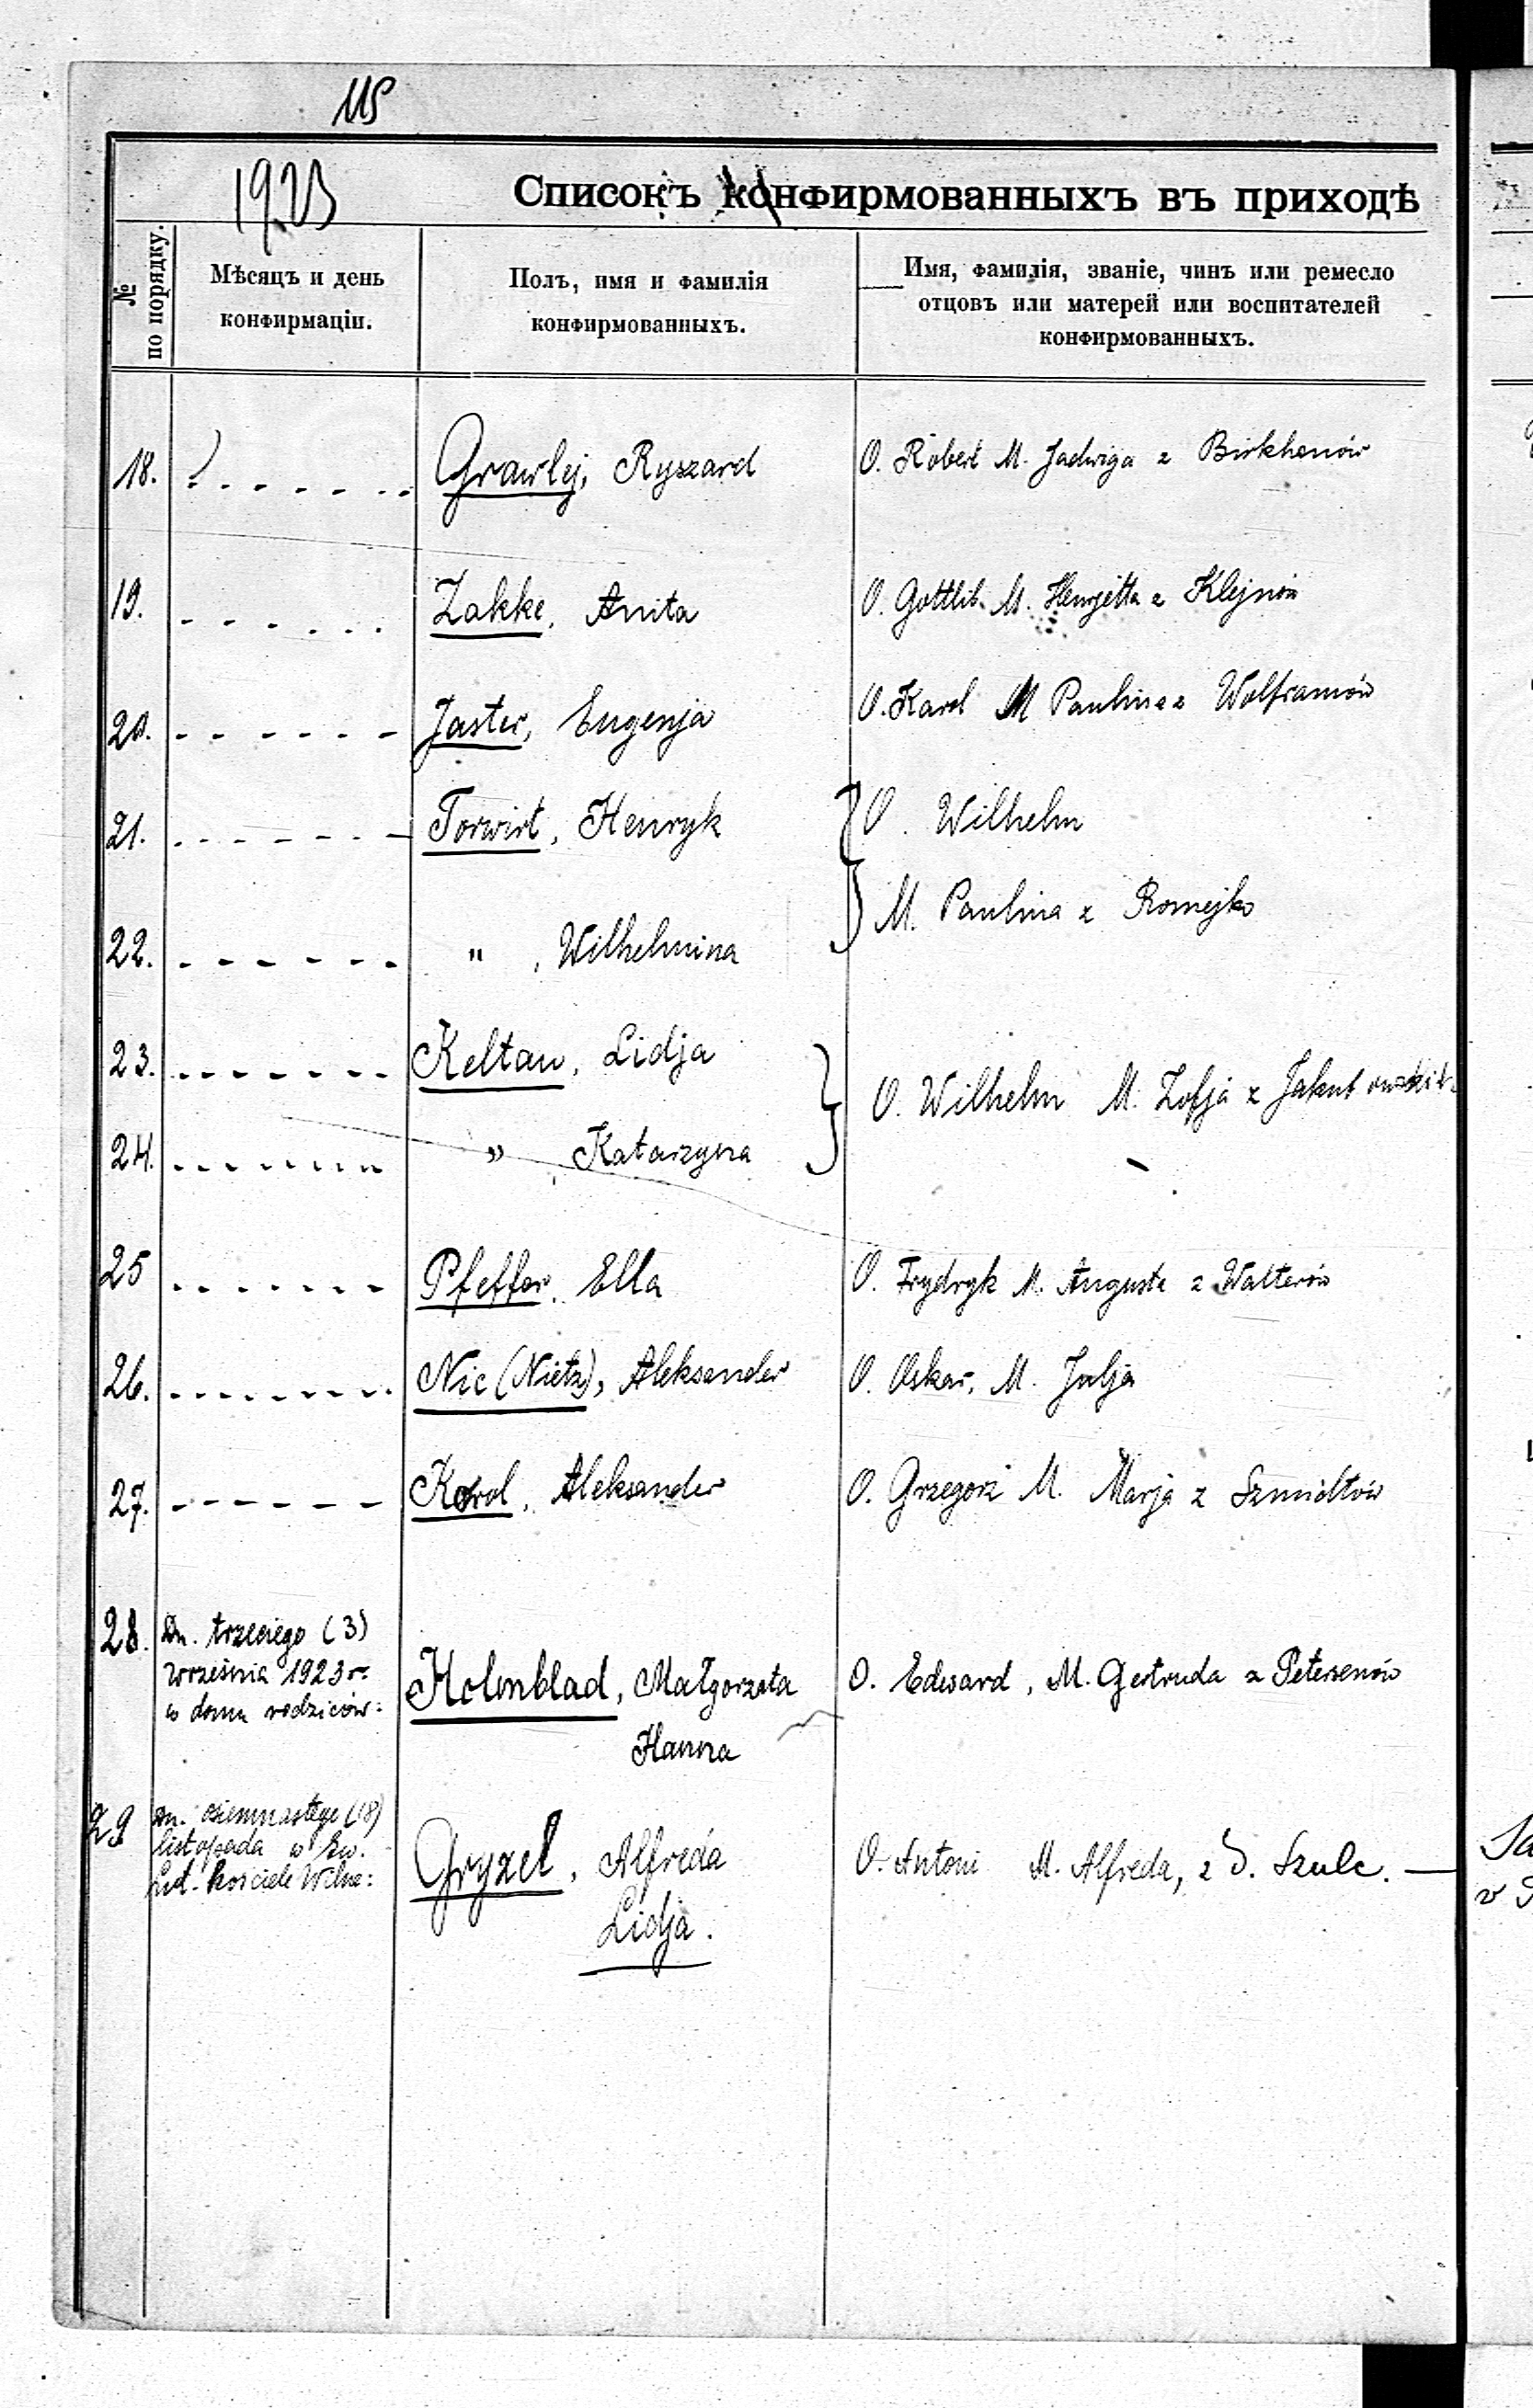 115
1923
Списокъ конфирмованныхъ въ приходѣ
№ по порядку.
Мѣсяцъ и день
конфирмаціи.
Полъ, имя и фамилія
конфирмованныхъ.
Имя, фамилія, званіе, чинъ или ремесло
отцовъ или матерей или воспитателей
конфирмованныхъ.
18. Grawlej, Ryszard O. Robert M. Jadwiga z Birkhenów
19. Zakke, Anita O. Gottlib. M. Henrjetta z Klejnów
20. Jaster, Eugenja O. Karol M Paulina z Wolframów
21. Torwirt, Henryk O. Wilhelm
M. Paulina z Romejko
22. " , Wilhelmina
23. Keltau, Lidja
O. Wilhelm M. Zofja z
24. " Katarzyna
25 Pfeffer, Ella O. Frydryk M. Augusta z Walterów
26. Nic (Nietz), Aleksander O. Oskar, M. Julja
27. Korol, Aleksander O. Grzegorz M. Marja z Szmidtów
28. Dn. trzeciego (3)
września 1923 r.
w domu rodziców:
Holmblad, Małgorzata O. Edward, M. Gertruda z Petersenów
Hanna
29 Dn. osiemnastego (18)
listopada w Ew.
Lut. kościele Wilna:
Gryzel, Alfreda O. Antoni M. Alfreda, z d. Szulc. —
Lidja.